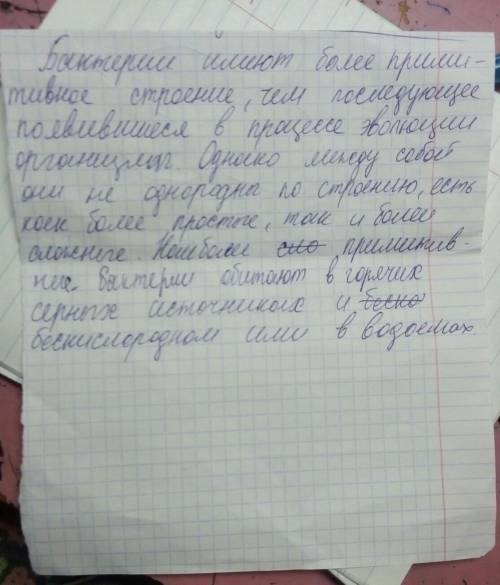 Бактерии имеют более прими-
тивное строение, чем последующее
появившиеся в процессе эволюции
организмы. Однако между собой
они не однородны по строению, есть
как более простые, так и более
сложные. Наиболее сло примитив-
ные Бактерии обитают в горячих
серных источниках и беско
бескислородном или в водоемах